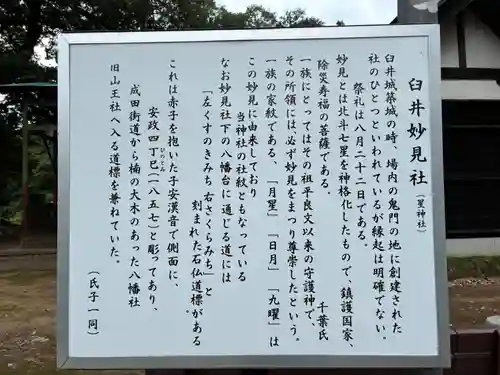 臼井妙見社
（星神社）
臼井城築城の時、場内の鬼門の地に創建された
社のひとつといわれているが縁起は明確でない。
祭礼は八月二十二日である。
妙見とは北斗七星を神格化したもので、鎮護国家、
除災寿福の菩薩である。
千葉氏
一族にとってはその祖平良文以来の守護神で、
その所領には、必ず妙見をまつり尊崇したという。
一族の家紋である、「月星」「日月」「九曜」は
この妙見に由来しており
当神社の社紋ともなっている
なお妙見社下の八幡台に通じる道には
「左くすのきみち 右さくらみち」と
刻まれた石仏道標がある
これは赤子を抱いた子安漢音で側面に、
安政四丁巳（一八五七）と彫ってあり、
ひのとみ
成田街道から楠の大木のあった八幡社
旧山王社へ入る道標を兼ねていた。
（氏子一同）